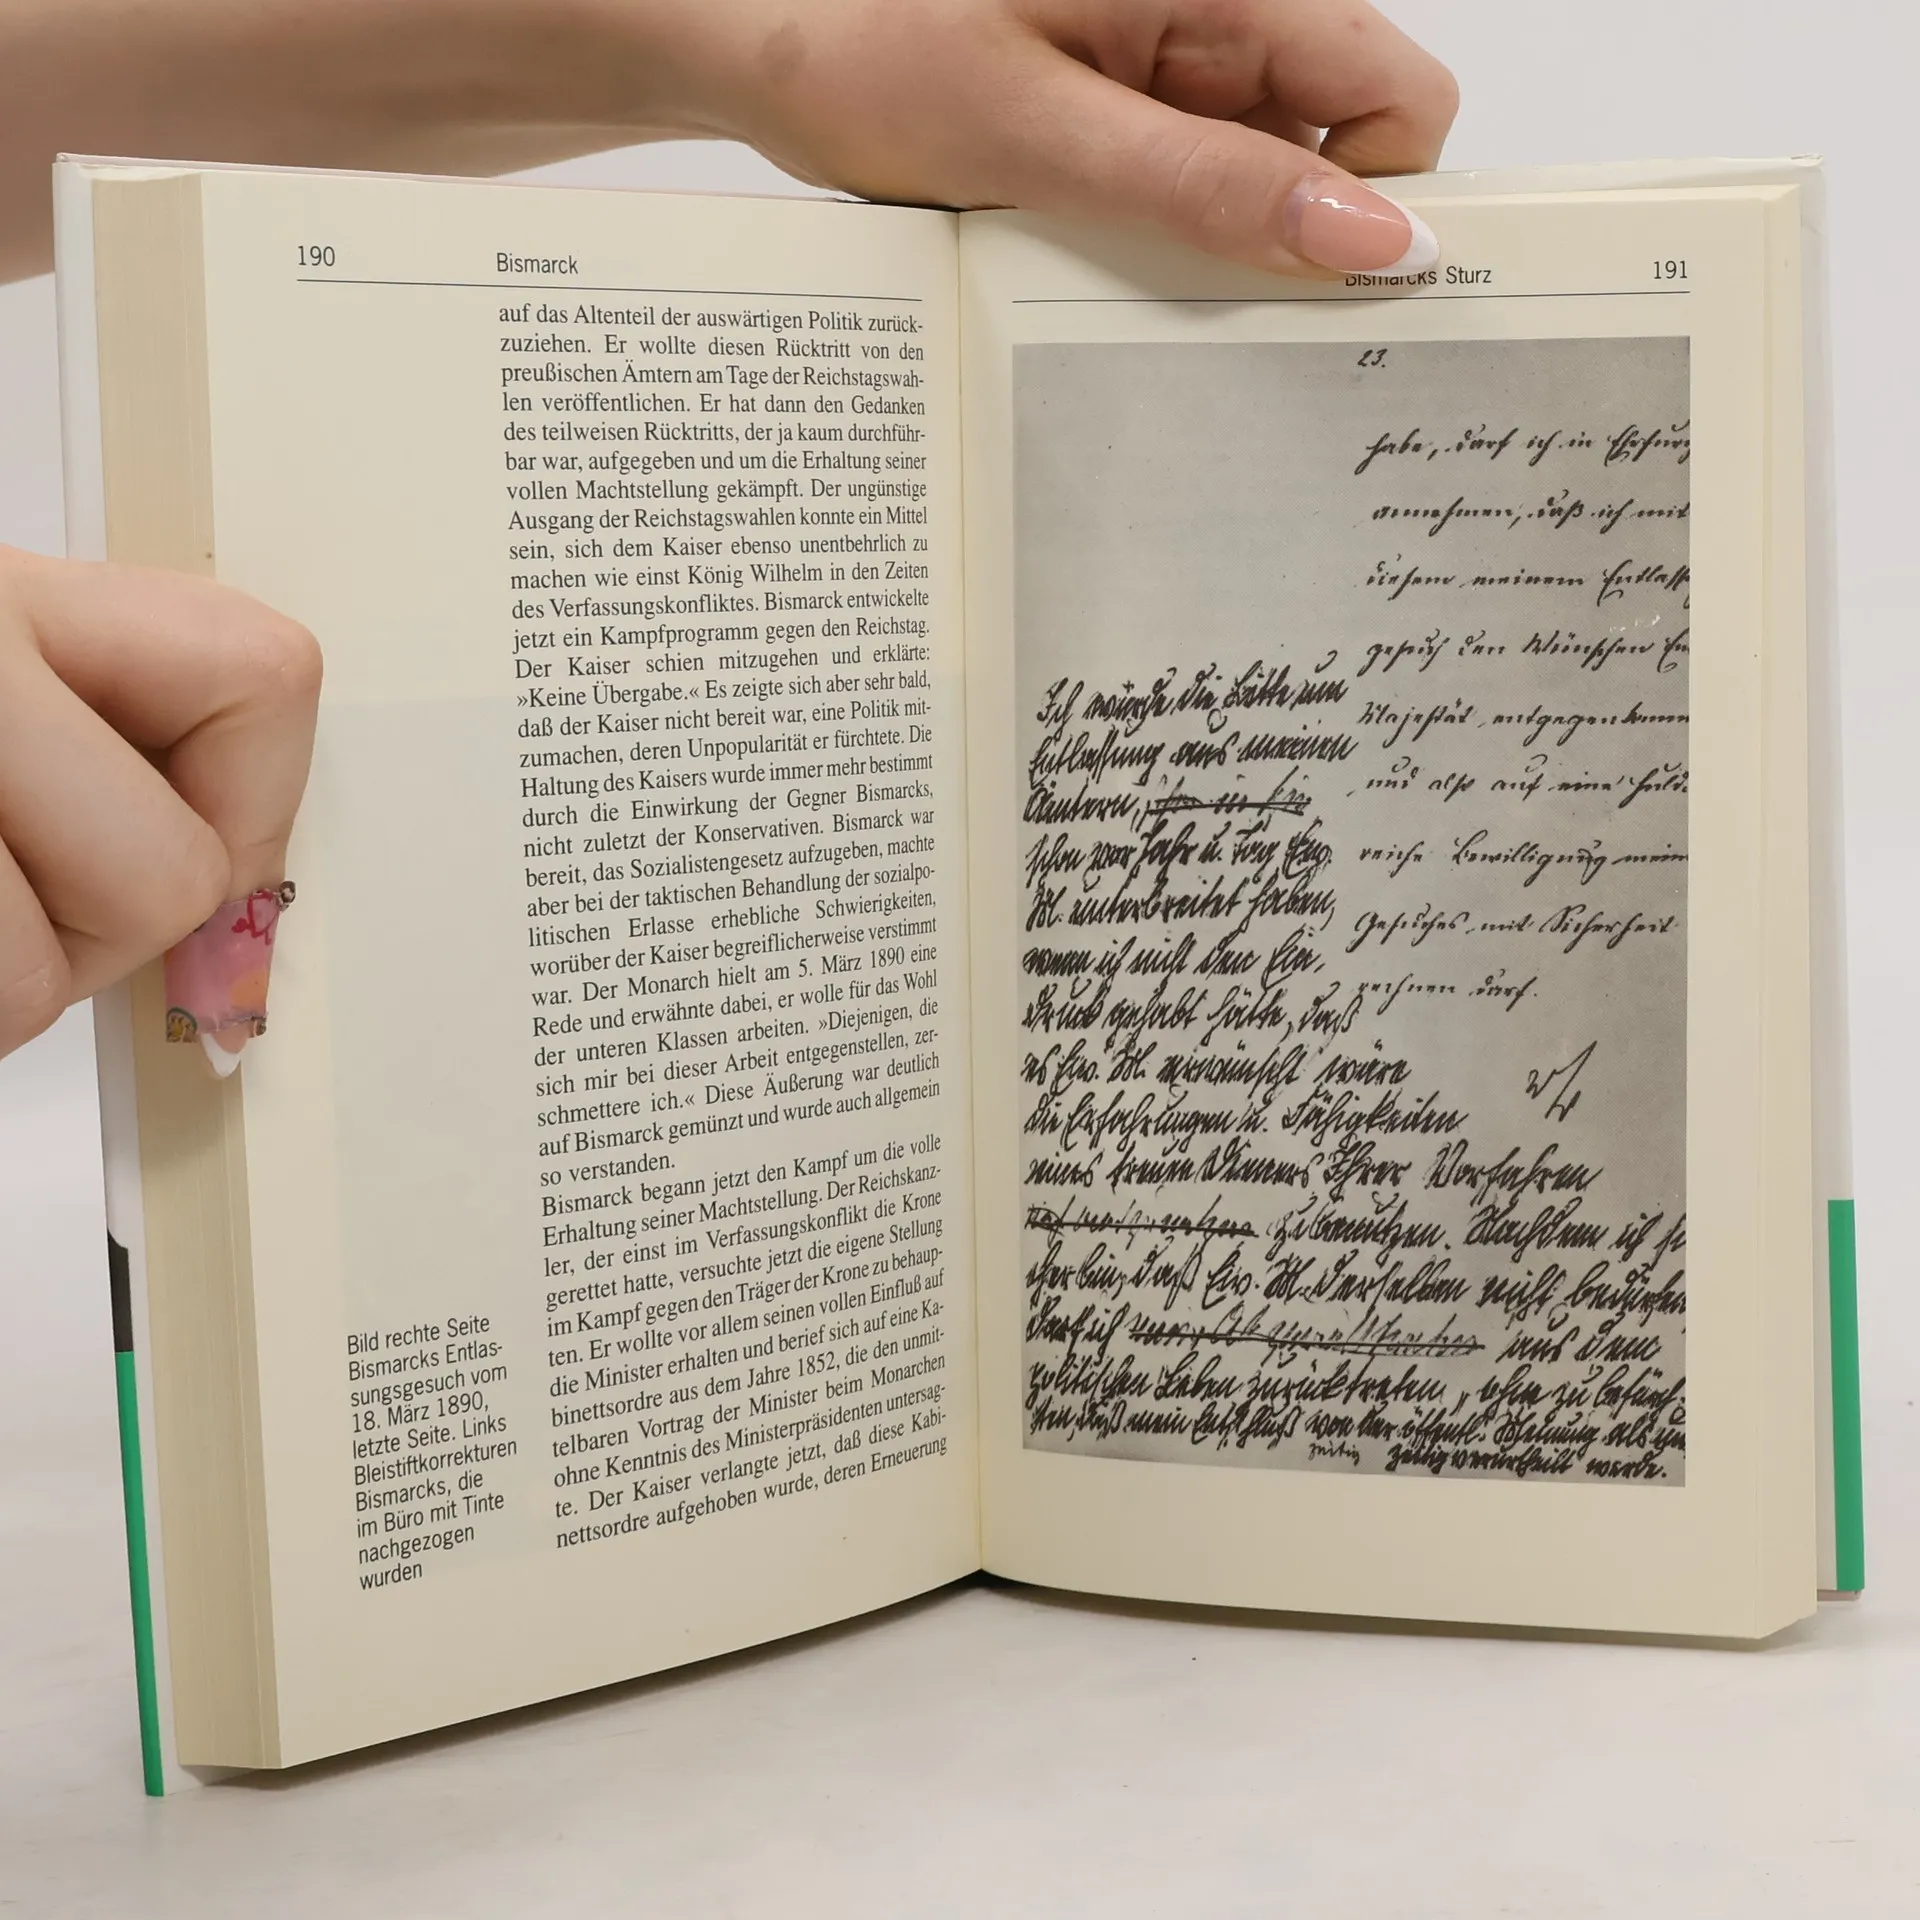 190
Bismarck
auf das Altenteil der auswärtigen Politik zurück-
zuziehen. Er wollte diesen Rücktritt von den
preußischen Ämtern am Tage der Reichstagswah-
len veröffentlichen. Er hat dann den Gedanken
des teilweisen Rücktritts, der ja kaum durchführ-
bar war, aufgegeben und um die Erhaltung seiner
vollen Machtstellung gekämpft. Der ungünstige
Ausgang der Reichstagswahlen konnte ein Mittel
sein, sich dem Kaiser ebenso unentbehrlich zu
machen wie einst König Wilhelm in den Zeiten
des Verfassungskonfliktes. Bismarck entwickelte
jetzt ein Kampfprogramm gegen den Reichstag.
Der Kaiser schien mitzugehen und erklärte:
»Keine Übergabe.« Es zeigte sich aber sehr bald,
daß der Kaiser nicht bereit war, eine Politik mit-
zumachen, deren Unpopularität er fürchtete. Die
Haltung des Kaisers wurde immer mehr bestimmt
durch die Einwirkung der Gegner Bismarcks,
nicht zuletzt der Konservativen. Bismarck war
bereit, das Sozialistengesetz aufzugeben, machte
aber bei der taktischen Behandlung der sozialpo-
litischen Erlasse erhebliche Schwierigkeiten,
worüber der Kaiser begreiflicherweise verstimmt
war. Der Monarch hielt am 5. März 1890 eine
Rede und erwähnte dabei, er wolle für das Wohl
der unteren Klassen arbeiten. »Diejenigen, die
sich mir bei dieser Arbeit entgegenstellen, zer-
schmettere ich.« Diese Äußerung war deutlich
auf Bismarck gemünzt und wurde auch allgemein
so verstanden.
Bismarck begann jetzt den Kampf um die volle
Erhaltung seiner Machtstellung. Der Reichskanz-
ler, der einst im Verfassungskonflikt die Krone
gerettet hatte, versuchte jetzt die eigene Stellung
im Kampf gegen den Träger der Krone zu behaup-
ten. Er wollte vor allem seinen vollen Einfluß auf
die Minister erhalten und berief sich auf eine Ka-
binettsordre aus dem Jahre 1852, die den unmit-
telbaren Vortrag der Minister beim Monarchen
ohne Kenntnis des Ministerpräsidenten untersag-
te. Der Kaiser verlangte jetzt, daß diese Kabi-
nettsordre aufgehoben wurde, deren Erneuerung
Bild rechte Seite
Bismarcks Entlas-
sungsgesuch vom
18. März 1890,
letzte Seite. Links
Bleistiftkorrekturen
Bismarcks, die
im Büro mit Tinte
nachgezogen
wurden
Bismarcks Sturz
191
23.
habe, darf ich in Ehrfurc
annehmen, daß ich mit
diesem meinem Entlass
gesuch den Wünschen Eu
Majestät entgegenkomm
und also auf eine huld
reiche Bewilligung mein
Gesuches mit Sicherheit
rechnen darf.
Ich würde die Bitte um
Entlassung aus meinen
Ämtern,
schon vor Jahr u. Tag Ew.
M. unterbreitet haben,
wenn ich nicht den Ein-
druck gehabt hätte, daß
es Ew. M. erwünscht wäre
die Erfahrungen u. Fähigkeiten
eines treuen Dieners Ihrer Vorfahren
zu benutzen. Nachdem ich si
cher bin, daß Ew. M. derselben nicht bedürfen
darf ich aus dem
politischen Leben zurücktreten, ohne zu befürch-
ten, daß mein Entschluß von der öffentl. Meinung als un
zeitig zeitig verurtheilt werde.